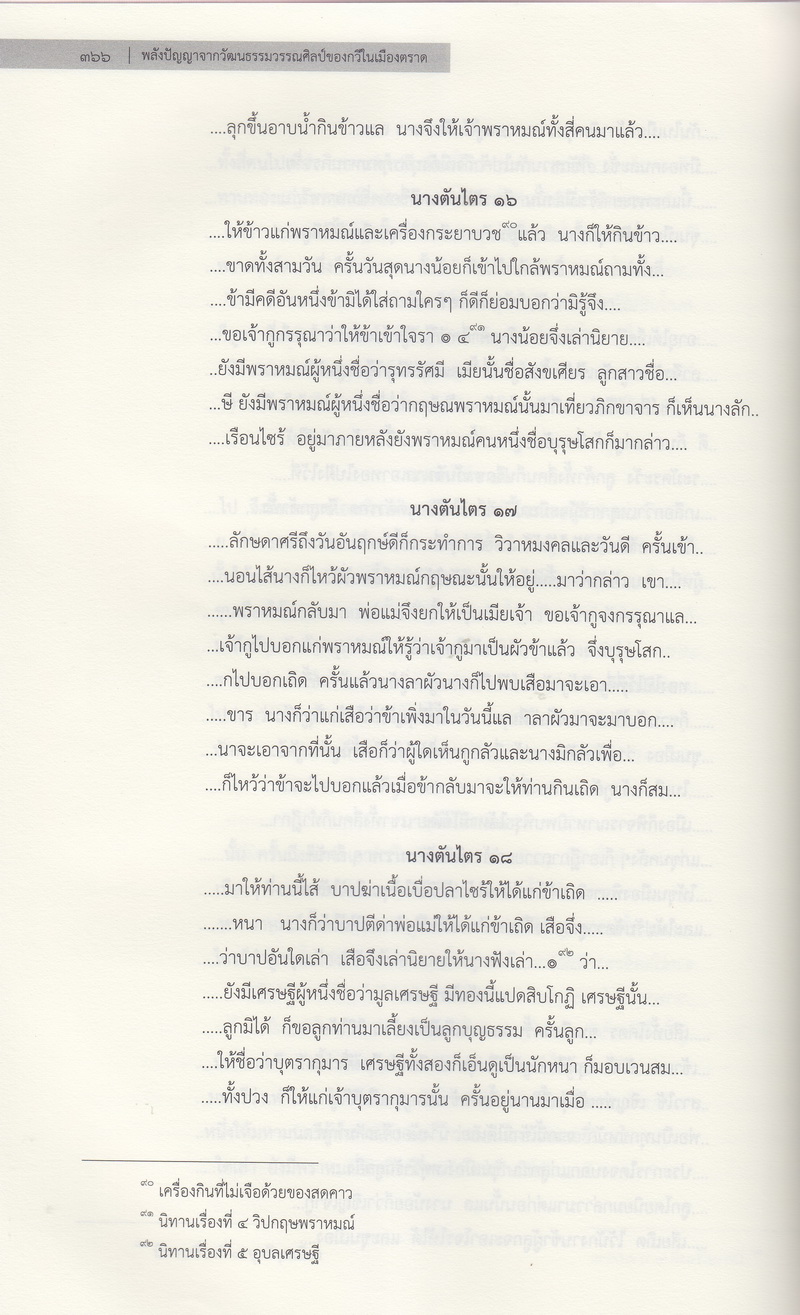 ๓๖๖ | พลังปัญญาจากวัฒนธรรมวรรณศิลป์ของกวีในเมืองตราด
....ลุกขึ้นอาบน้ำกินข้าวแล นางจึงให้เจ้าพราหมณ์ทั้งสี่คนมาแล้ว....
นางตันไตร ๑๖
....ให้ข้าวแก่พราหมณ์และเครื่องกระยาบวช๙๐แล้ว นางก็ให้กินข้าว....
....ขาดทั้งสามวัน ครั้นวันสุดนางน้อยก็เข้าไปใกล้พราหมณ์ถามทั้ง...
....ข้ามีคดีอันหนึ่งข้ามิได้ใส่ถามใครๆ ก็ดีก็ย่อมบอกว่ามิรู้จึง....
...ขอเจ้ากูกรรุณาว่าให้ข้าเข้าใจรา ๑ ๔๙๑ นางน้อยจึ่งเล่านิยาย....
..ยังมีพราหมณ์ผู้หนึ่งชื่อว่ารุทรรัศมี เมียนั้นชื่อสังขเศียร ลูกสาวชื่อ...
...ษี ยังมีพราหมณ์ผู้หนึ่งชื่อว่ากฤษณพราหมณ์นั้นมาเที่ยวภิกขาจาร ก็เห็นนางลัก..
....เรือนไซร้ อยู่มาภายหลังยังพราหมณ์คนหนึ่งชื่อบุรุษโสกก็มากล่าว....
นางตันไตร ๑๗
.....ลักษดาศรีถึงวันอันฤกษ์ดีก็กระทำการ วิวาหมงคลและวันดี ครั้นเข้า..
....นอนไส้นางก็ไหว้ผัวพราหมณ์กฤษณะนั้นให้อยู่.....มาว่ากล่าว เขา....
......พราหมณ์กลับมา พ่อแม่จึงยกให้เป็นเมียเจ้า ขอเจ้ากูจงกรรุณาแล...
...เจ้ากูไปบอกแก่พราหมณ์ให้รู้ว่าเจ้ากูมาเป็นผัวข้าแล้ว จึ่งบุรุษโสก..
....กไปบอกเถิด ครั้นแล้วนางลาผัวนางก็ไปพบเสือมาจะเอา.....
.....ขาร นางก็ว่าแก่เสือว่าข้าเพิ่งมาในวันนี้แล าลาผัวมาจะมาบอก....
...นาจะเอาจากที่นั้น เสือก็ว่าผู้ใดเห็นกูกลัวและนางมิกลัวเพื่อ...
....ก็ไหว้ว่าข้าจะไปบอกแล้วเมื่อข้ากลับมาจะให้ท่านกินเถิด นางก็สม...
นางตันไตร ๑๘
.....มาให้ท่านนี้ไส้ บาปฆ่าเนื้อเบื่อปลาไซร้ให้ได้แก่ข้าเถิด .....
.......หนา นางก็ว่าบาปตีด่าพ่อแม่ให้ได้แก่ข้าเถิด เสือจึ่ง.....
....ว่าบาปอันใดเล่า เสือจึงเล่านิยายให้นางฟังเล่า...๑๙๒ ว่า...
.....ยังมีเศรษฐีผู้หนึ่งชื่อว่ามูลเศรษฐี มีทองนี้แปดสิบโกฏิ เศรษฐีนั้น...
.....ลูกมิได้ ก็ขอลูกท่านมาเลี้ยงเป็นลูกบุญธรรม ครั้นลูก...
....ให้ชื่อว่าบุตรากุมาร เศรษฐีทั้งสองก็เอ็นดูเป็นนักหนา ก็มอบเวนสม...
.....ทั้งปวง ก็ให้แก่เจ้าบุตรากุมารนั้น ครั้นอยู่นานมาเมื่อ .....
๙๐ เครื่องกินที่ไม่เจือด้วยของสดคาว
๙๑ นิทานเรื่องที่ ๔ วิปกฤษพราหมณ์
๙๒ นิทานเรื่องที่ ๕ อุบลเศรษฐี